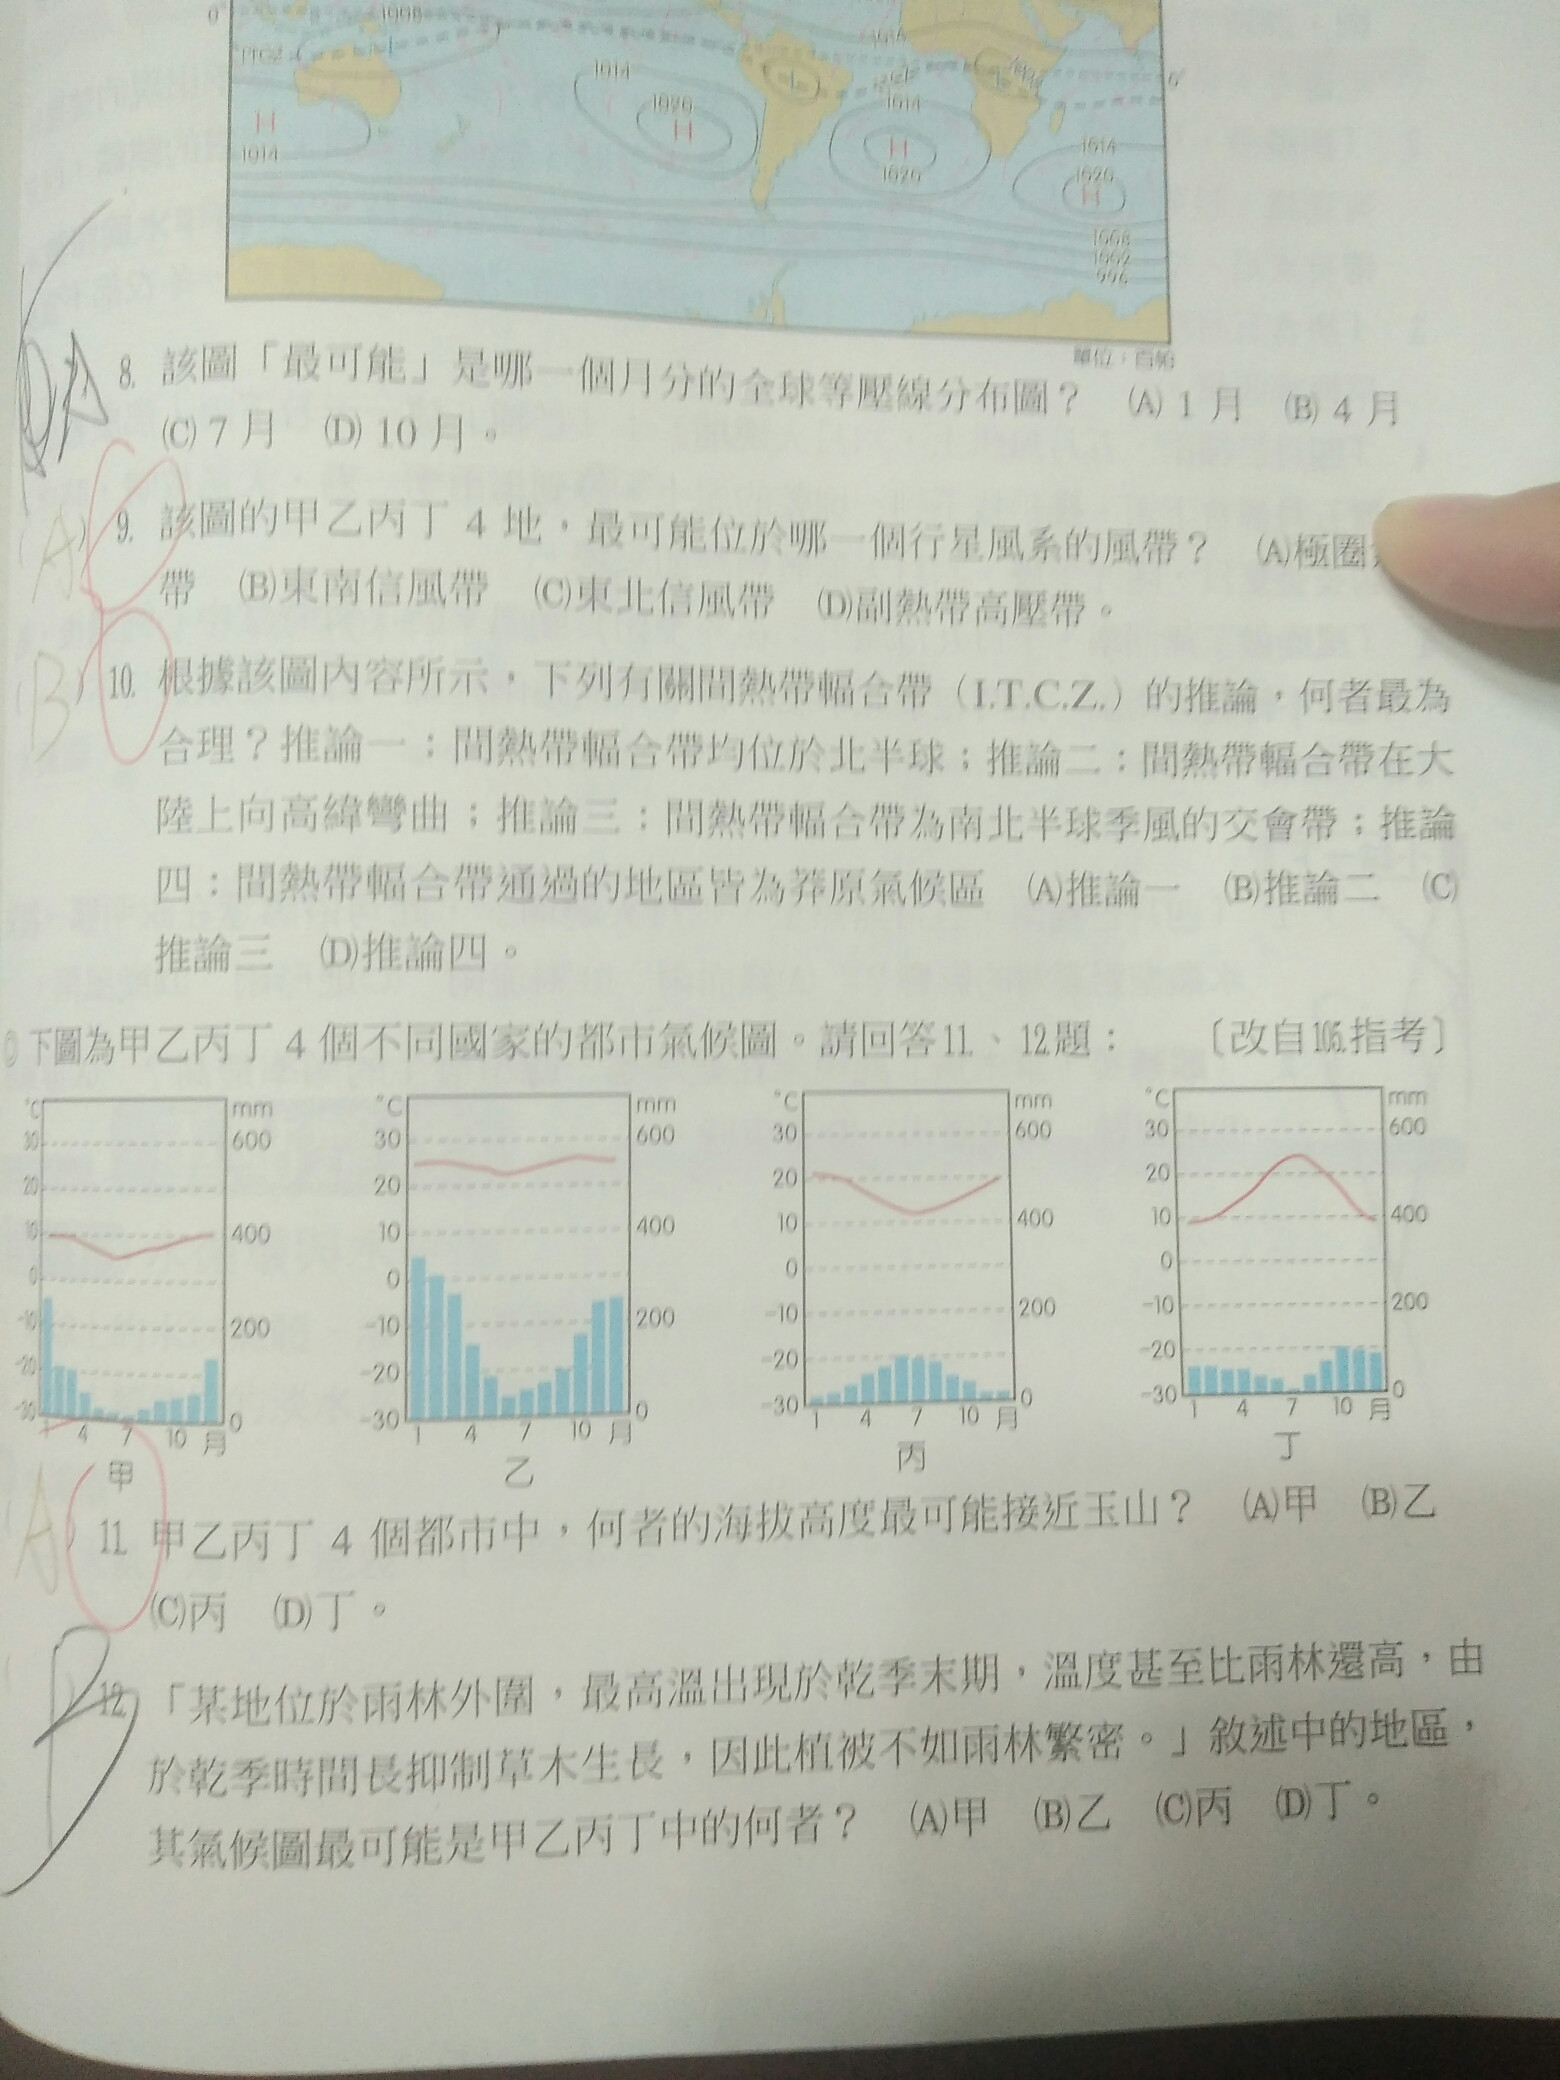 0°
1008
1014
ITCZ
L
L
L
0°
1014
1020
H
H
1014
1014
H
1020
1014
1020
H
1008
1002
996
單位：百帕
A
8. 該圖「最可能」是哪一個月分的全球等壓線分布圖？ (A) 1 月 (B) 4 月
(C) 7 月 (D) 10 月。
A
9. 該圖的甲乙丙丁 4 地，最可能位於哪一個行星風系的風帶？ (A)極圈
帶 (B)東南信風帶 (C)東北信風帶 (D)副熱帶高壓帶。
B
10. 根據該圖內容所示，下列有關間熱帶輻合帶（I.T.C.Z.）的推論，何者最為
合理？推論一：間熱帶輻合帶均位於北半球；推論二：間熱帶輻合帶在大
陸上向高緯彎曲；推論三：間熱帶輻合帶為南北半球季風的交會帶；推論
四：間熱帶輻合帶通過的地區皆為莽原氣候區 (A)推論一 (B)推論二 (C)
推論三 (D)推論四。
◎下圖為甲乙丙丁 4 個不同國家的都市氣候圖。請回答11.、12.題： 〔改自105.指考〕
°C mm °C mm °C mm °C mm
30 600 30 600 30 600 30 600
20 20 20 20
10 400 10 400 10 400 10 400
0 0 0 0
-10 200 -10 200 -10 200 -10 200
-20 -20 -20 -20
-30 0 -30 0 -30 0 -30 0
1 4 7 10 月 1 4 7 10 月 1 4 7 10 月 1 4 7 10 月
甲 乙 丙 丁
A
11. 甲乙丙丁 4 個都市中，何者的海拔高度最可能接近玉山？ (A)甲 (B)乙
(C)丙 (D)丁。
B
12. 「某地位於雨林外圍，最高溫出現於乾季末期，溫度甚至比雨林還高，由
於乾季時間長抑制草木生長，因此植被不如雨林繁密。」敘述中的地區，
其氣候圖最可能是甲乙丙丁中的何者？ (A)甲 (B)乙 (C)丙 (D)丁。